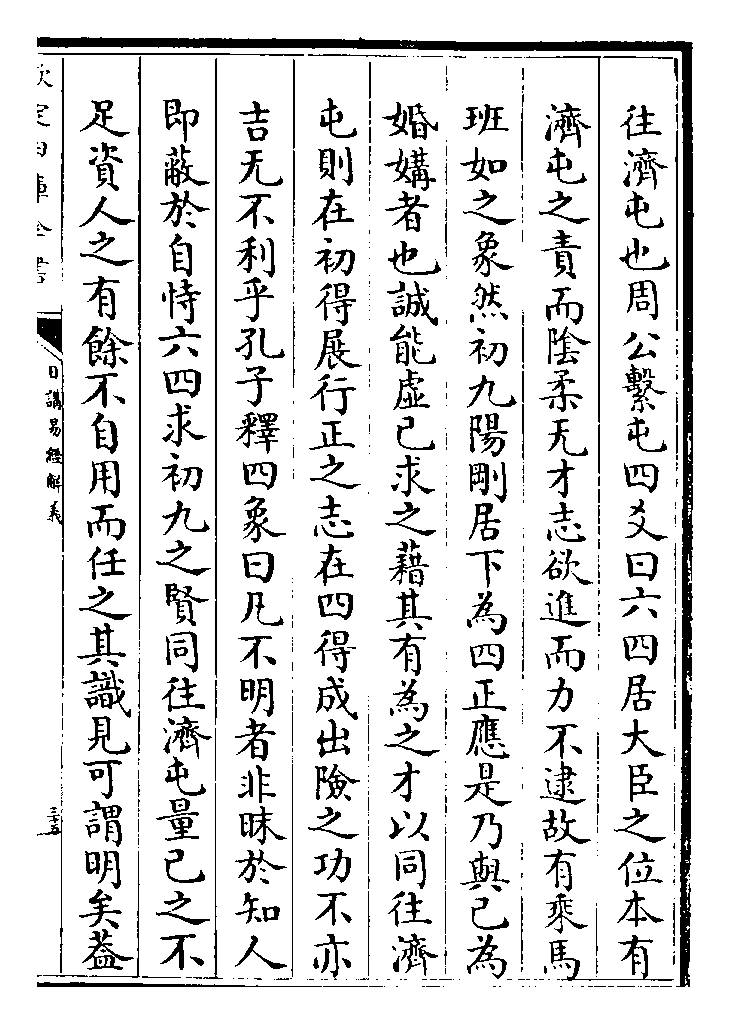 往濟屯也周公繫屯四爻曰六四居大臣之位本有
濟屯之責而陰柔无才志欲進而力不逮故有乘馬
班如之象然初九陽剛居下為四正應是乃與己為
婚媾者也誠能虛己求之藉其有為之才以同往濟
屯則在初得展行正之志在四得成出險之功不亦
吉无不利乎孔子釋四象曰凡不明者非昧於知人
即蔽於自恃六四求初九之賢同往濟屯量己之不
足資人之有餘不自用而任之其識見可謂明矣葢
欽定四庫全書
日講易經解義
三十五